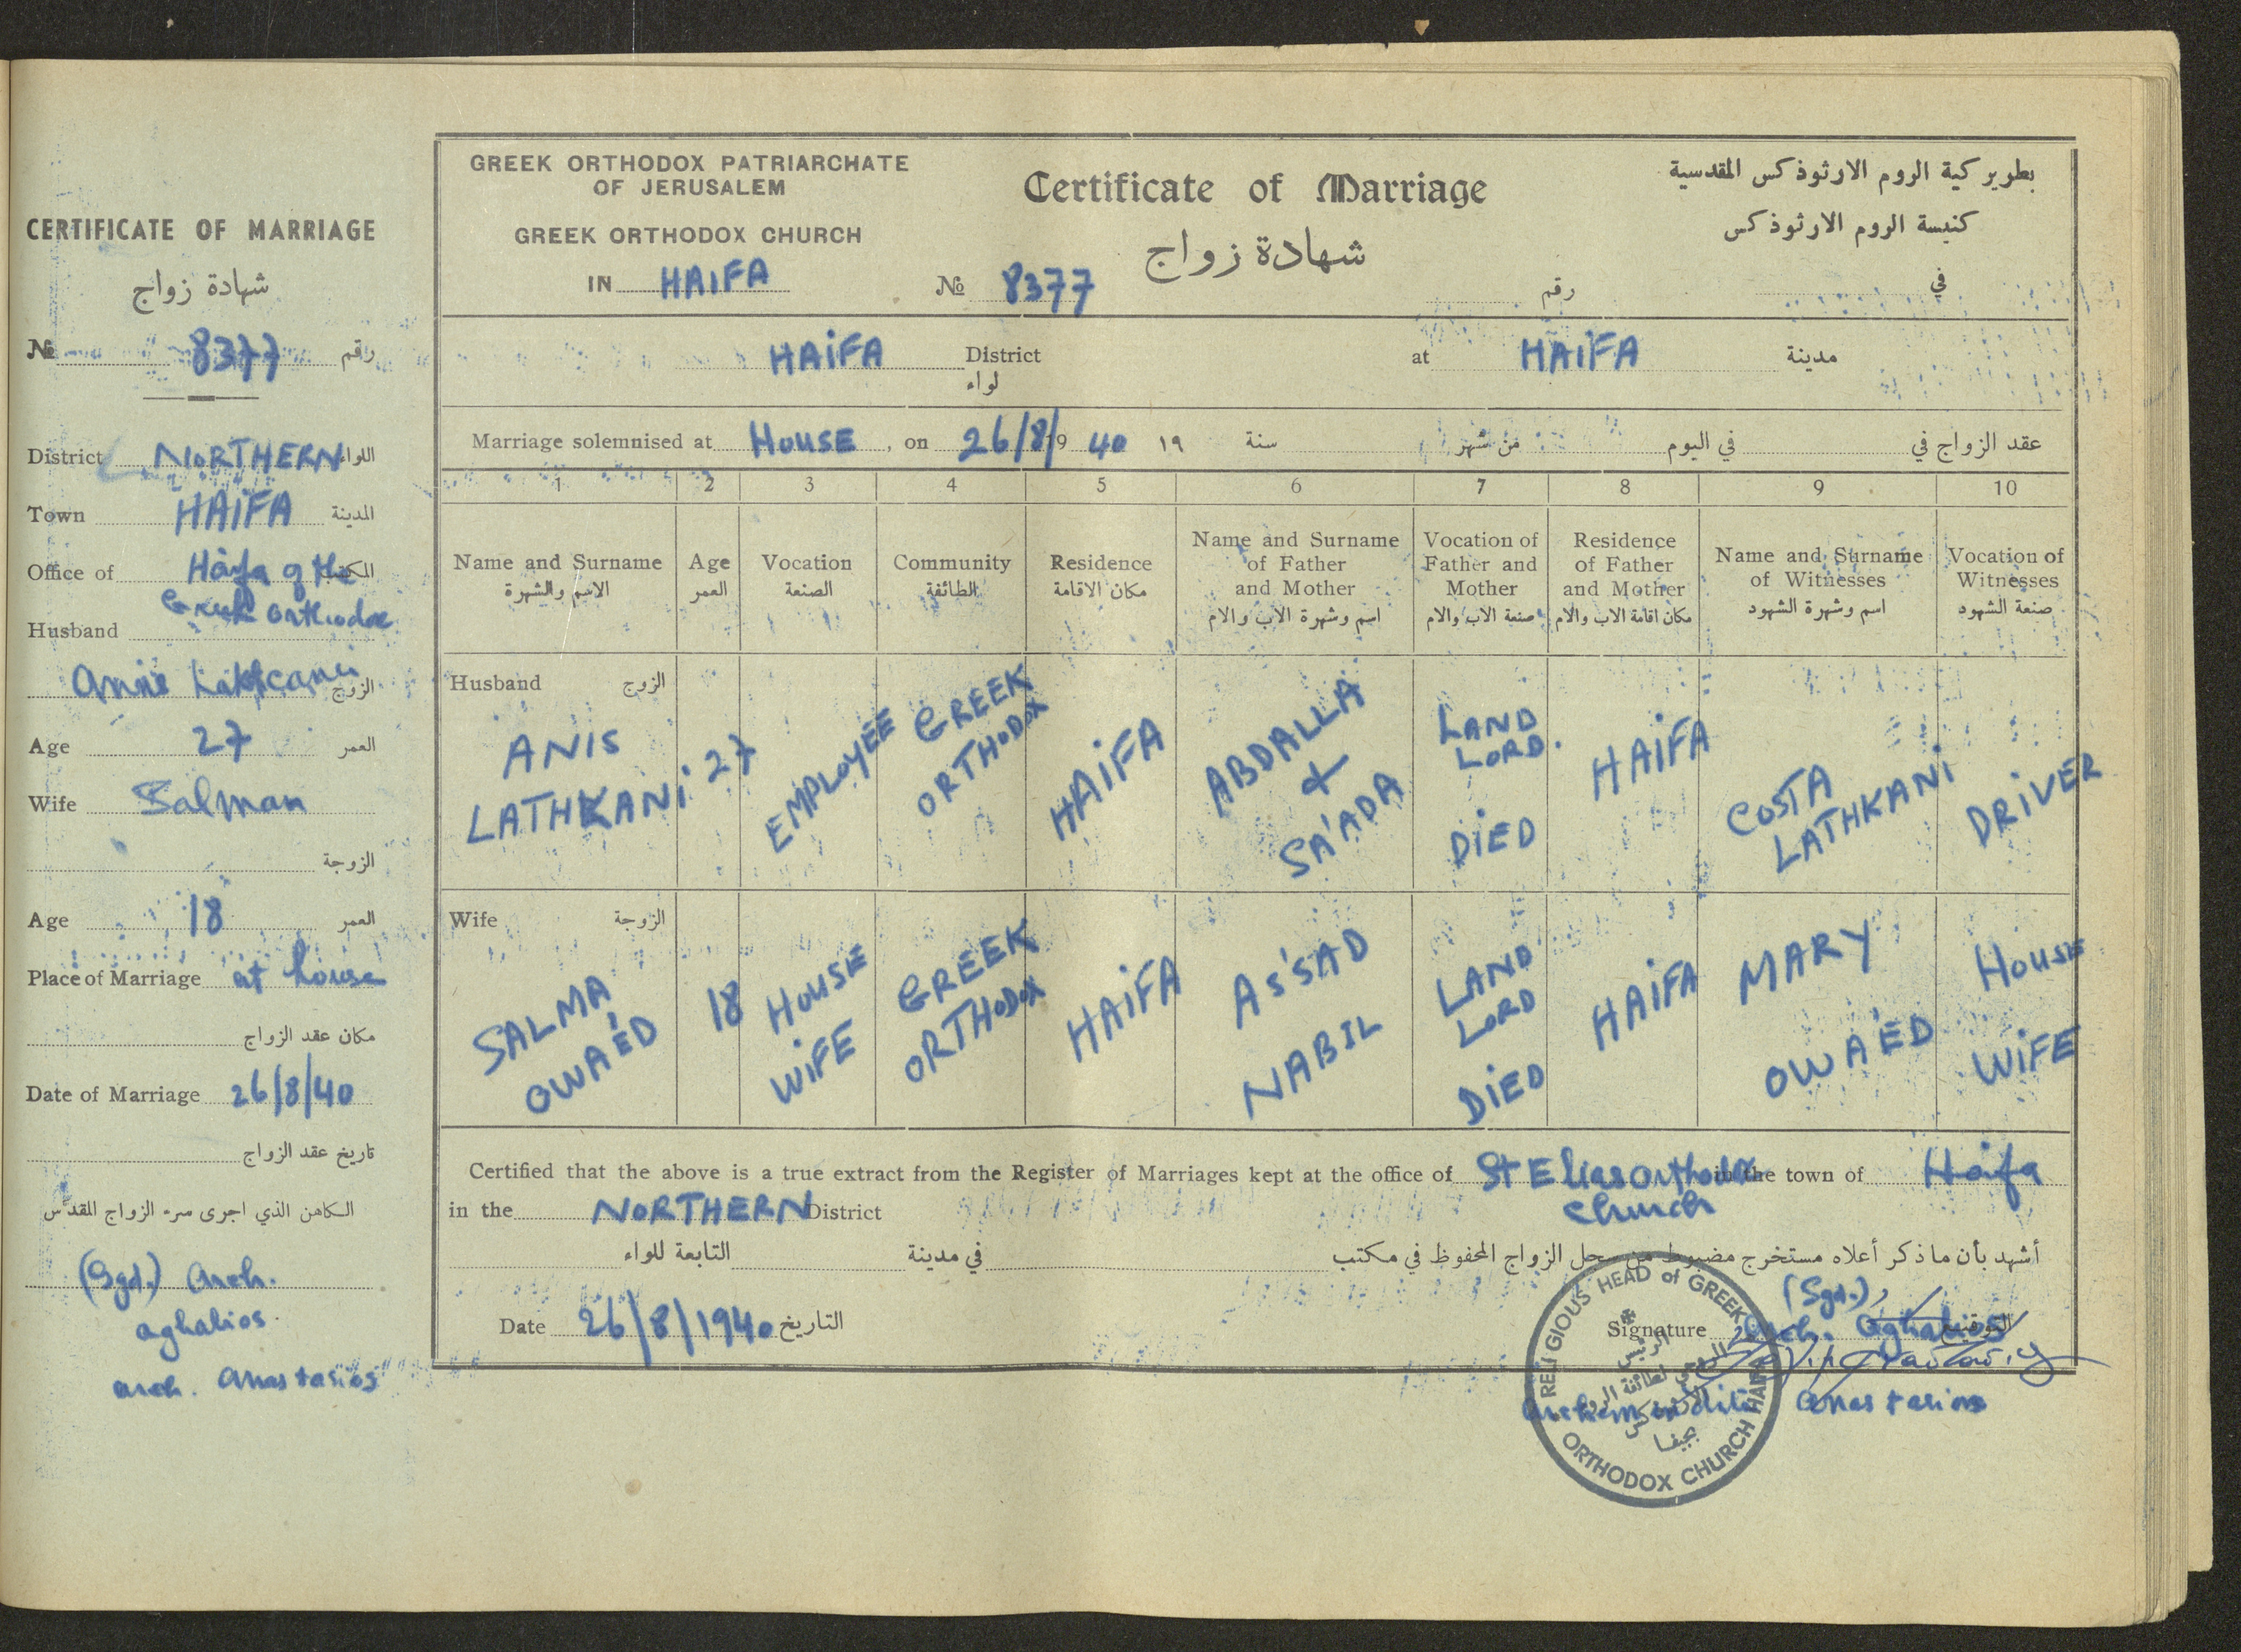 CERTIFICATE OF MARRIAGE
شهادة زواج
№ 8377 رقم
District NORTHERN اللواء
Town HAIFA المدينة
Office of Haifa of the المكتب
Greek Orthodox
Husband
الزوج
Age 27 العمر
Wife Salman
الزوجة
Age 18 العمر
Place of Marriage at house
مكان عقد الزواج
Date of Marriage 26/8/40
تاريخ عقد الزواج
الكاهن الذي اجرى سر الزواج المقدس
(Sgd.) Arch.
aghabios.
arch. Anastasios
GREEK ORTHODOX PATRIARCHATE
OF JERUSALEM
GREEK ORTHODOX CHURCH
IN HAIFA
Certificate of Marriage
شهادة زواج
№ 8377 رقم
بطوير كية الروم الارثوذكس المقدسية
كنيسة الروم الارثوذكس
في
HAIFA District at HAIFA مدينة
لواء
Marriage solemnised at HOUSE, on 26/8/19 40 ١٩ سنة من شهر في اليوم عقد الزواج في
1 2 3 4 5 6 7 8 9 10
Name and Surname
الاسم والشهرة
Age
العمر
Vocation
الصنعة
Community
الطائفة
Residence
مكان الاقامة
Name and Surname
of Father
and Mother
اسم وشهرة الاب والام
Vocation of
Father and
Mother
صنعة الاب والام
Residence
of Father
and Mother
مكان اقامة الاب والام
Name and Surname
of Witnesses
اسم وشهرة الشهود
Vocation of
Witnesses
صنعة الشهود
Husband الزوج
ANIS
LATHKANI
27
EMPLOYEE
GREEK
ORTHODOX
HAIFA
ABDALLA
&
SA'ADA
LAND
LORD.
DIED
HAIFA
COSTA
LATHKANI
DRIVER
Wife الزوجة
SALMA
OWA'ED
18
HOUSE
WIFE
GREEK
ORTHODOX
HAIFA
AS'SAD
NABIL
LAND
LORD
DIED
HAIFA
MARY
OWA'ED
HOUSE
WIFE
Certified that the above is a true extract from the Register of Marriages kept at the office of St Elias Orthodox in the town of Haifa
Church
in the NORTHERN District
أشهد بأن ما ذكر أعلاه مستخرج مضبوط من سجل الزواج المحفوظ في مكتب في مدينة التابعة للواء
Date 26/8/1940 التاريخ
(Sgd.)
Signature Arch. Aghabios التوقيع
Anastasios
RELIGIOUS HEAD of GREEK
ORTHODOX CHURCH HAIFA
الرئيس
الروحي لطائفة الروم
بحيفا